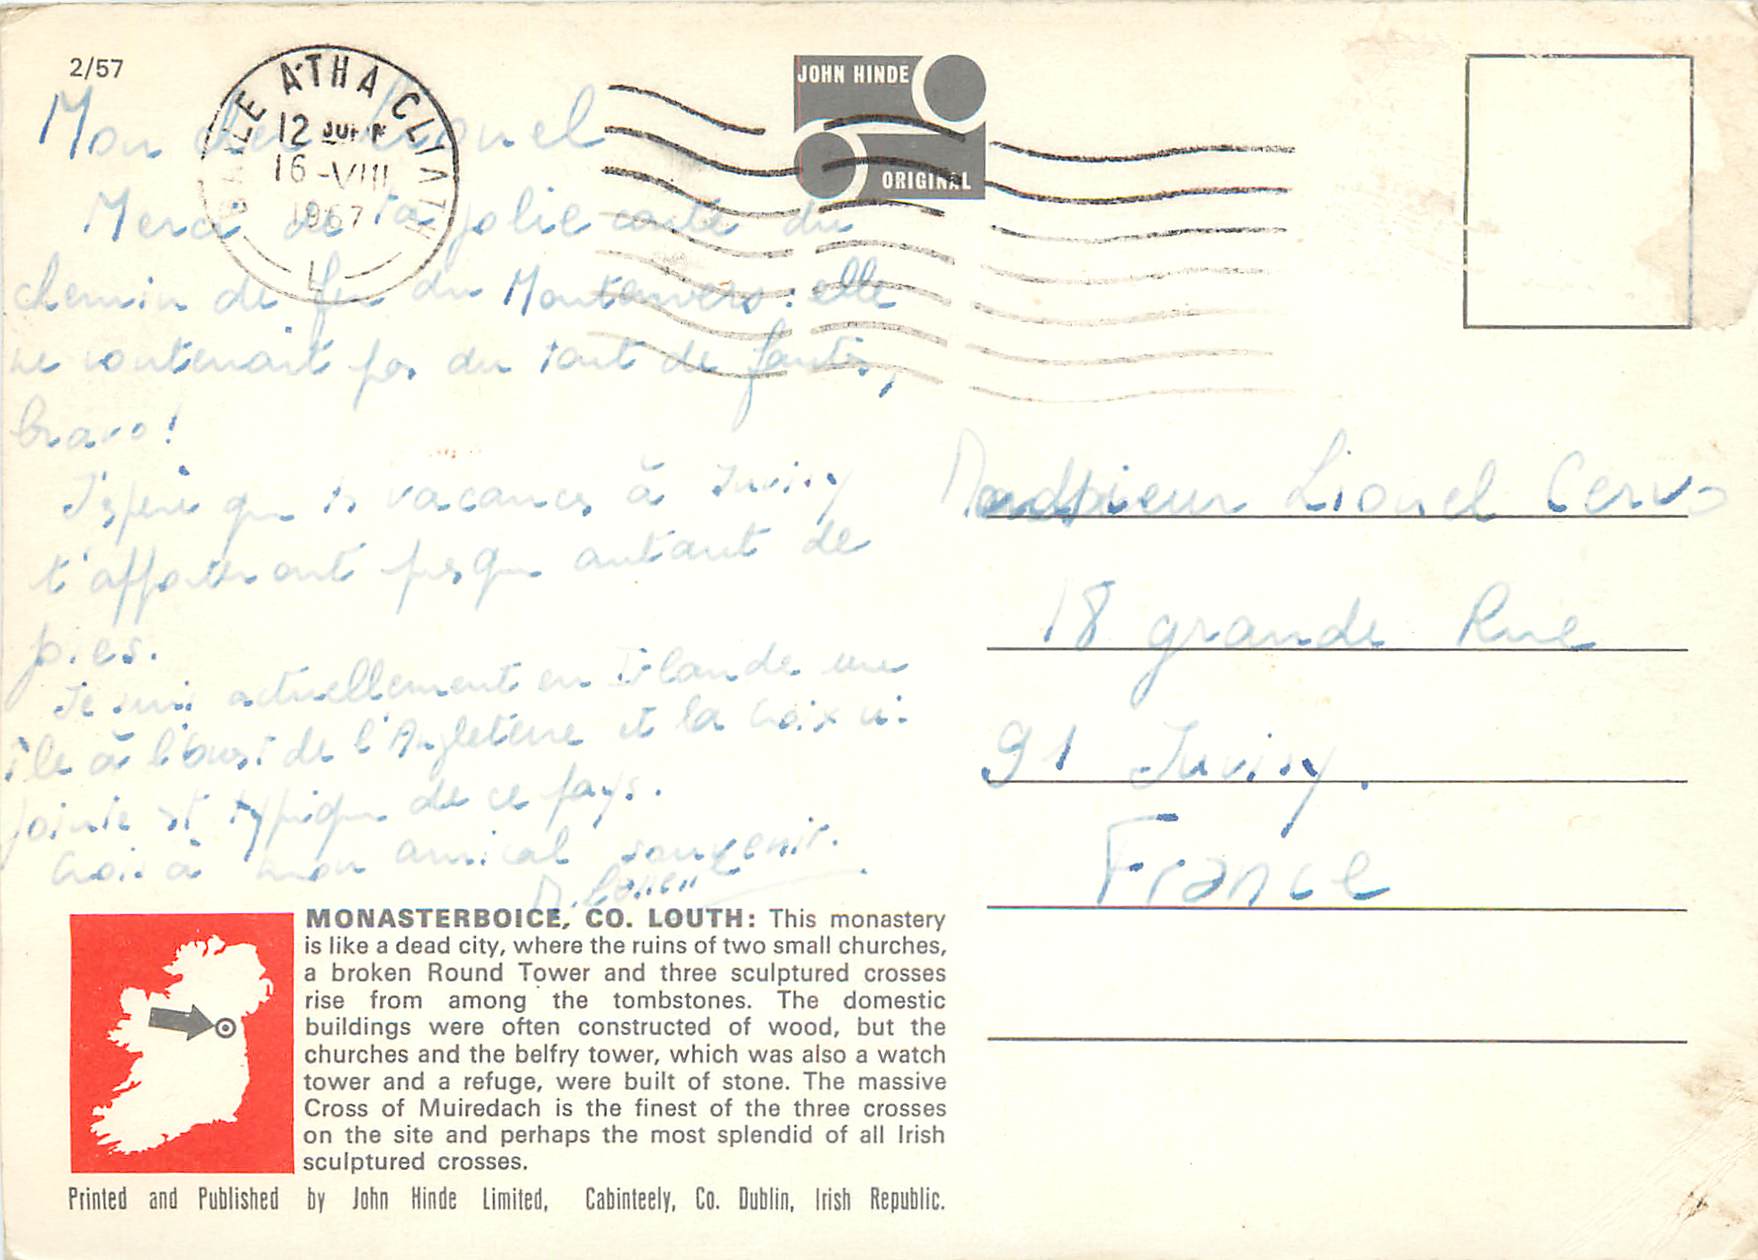 2/57
BAILE ATHA CLIATH
12
16-VIII
1967
L
JOHN HINDE
ORIGINAL
Mon cher Lionel
Merci de ta jolie carte du
chemin de fer du Montenvers : elle
ne contenait pas du tout de fautes,
bravo!
J'espère que tes vacances à Juvisy
t'apporteront presque autant de
joies.
Je suis actuellement en Irlande une
île à l'ouest de l'Angleterre et la croix ci-
jointe est typique de ce pays.
Crois à mon amical souvenir.
Monsieur Lionel Cervo
18 grande Rue
91 Juvisy.
France
MONASTERBOICE, CO. LOUTH: This monastery
is like a dead city, where the ruins of two small churches,
a broken Round Tower and three sculptured crosses
rise from among the tombstones. The domestic
buildings were often constructed of wood, but the
churches and the belfry tower, which was also a watch
tower and a refuge, were built of stone. The massive
Cross of Muiredach is the finest of the three crosses
on the site and perhaps the most splendid of all Irish
sculptured crosses.
Printed and Published by John Hinde Limited, Cabinteely, Co. Dublin, Irish Republic.